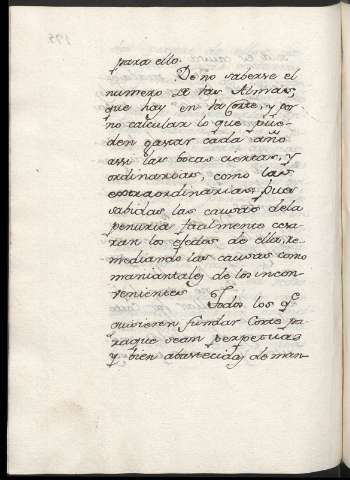 para ello.
De no saberse el
numero de las Almas,
que hay en la Corte, y por
no calcular lo que pue-
den gastar cada año
assi las bocas ciertas, y
ordinarias, como las
extraordinarias; pues
sabidas las causas dela
penuria facilmente cesa-
ran los efectos de ella, re-
mediando las causas como
maniantales de los incon-
venientes. Todos los q.e
quisieren fundar Corte pa-
raque sean perpetuas
y bien abastecidas de man-